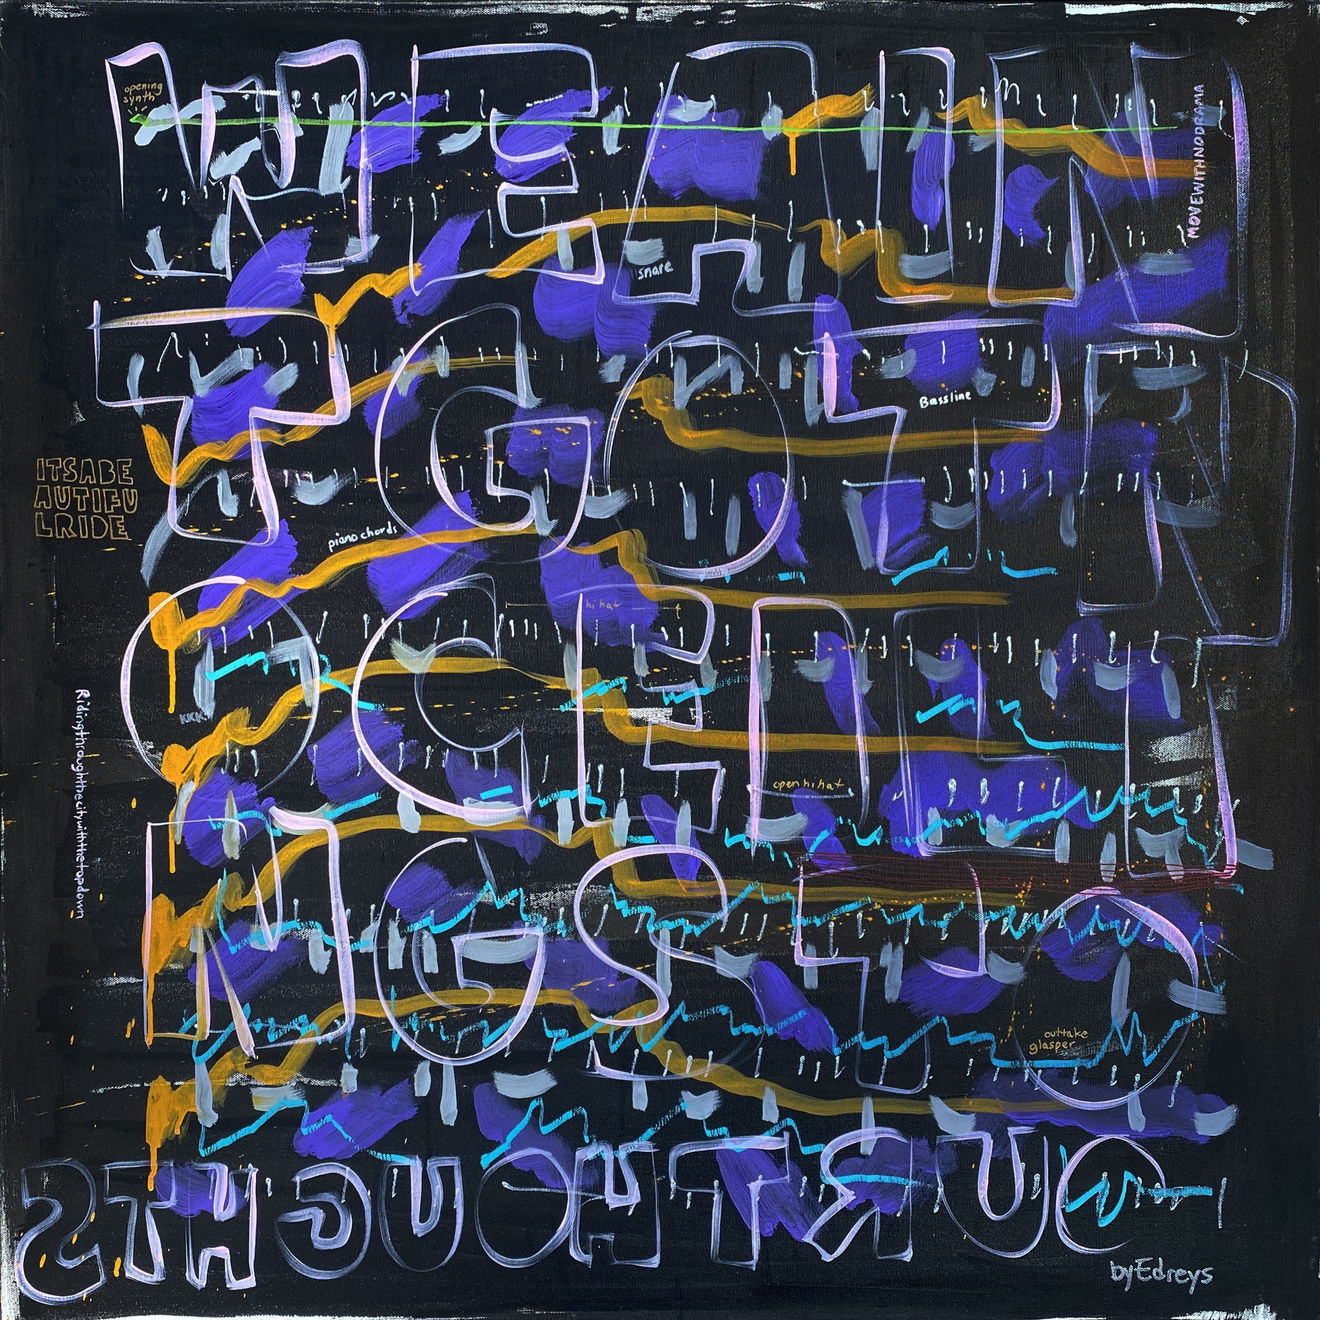 WEAIN
opening
synth
MOVEWITHNODRAMA
snare
TGOTN
Bassline
ITSABE
AUTIFU
LRIDE
piano chords
OCEILI
hi hat
kick
open hi hat
Ridingthroughthecitywiththetopdown
NGSTO
outtake
glasper
OURTHOUGHTS
byEdreys